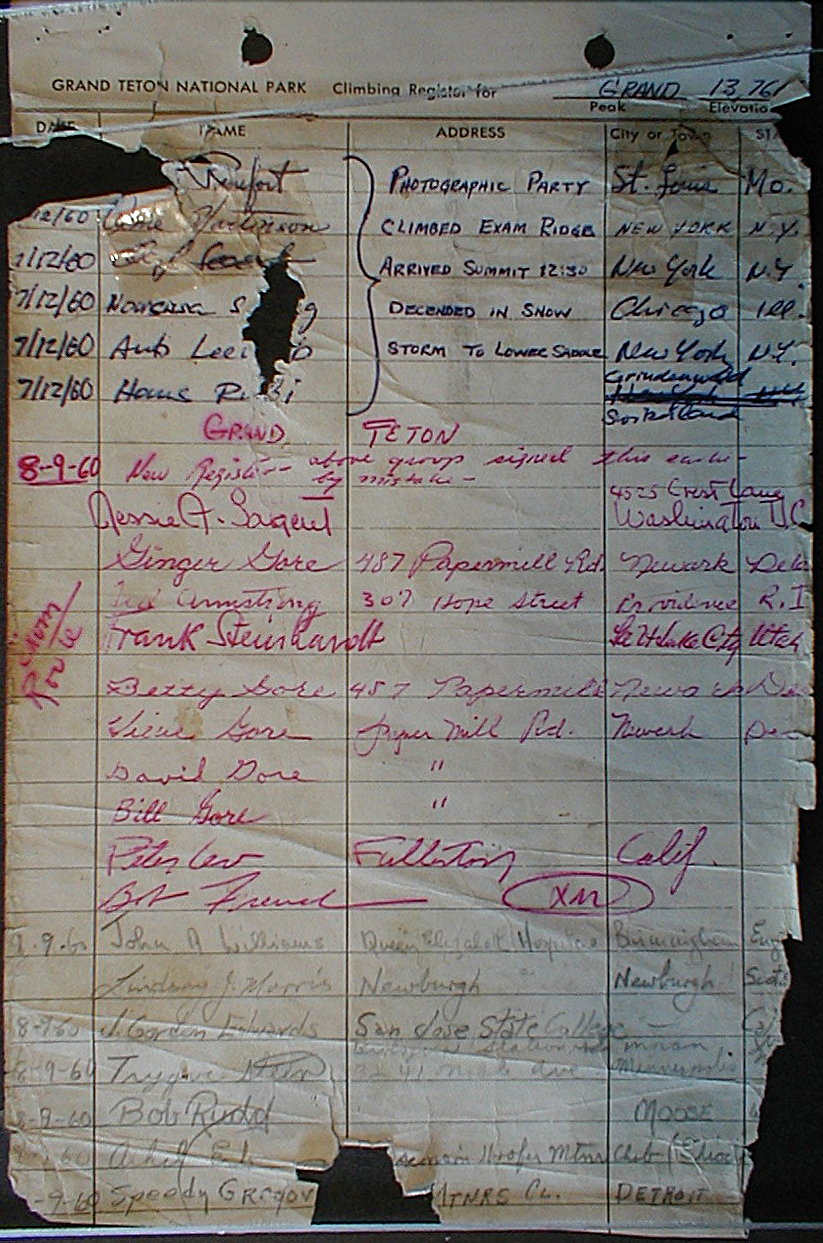 GRAND TETON NATIONAL PARK Climbing Register for GRAND 13,76
Peak Elevatio
DATE NAME ADDRESS City or Town STA
PHOTOGRAPHIC PARTY St. Louis Mo.
12/60 CLIMBED EXAM RIDGE NEW YORK N.Y.
7/12/60 ARRIVED SUMMIT 12:30 New York N.Y.
7/12/60 DECENDED IN SNOW Chicago Ill.
7/12/60 STORM TO LOWER SADDLE New York N.Y.
7/12/60 Hans
GRAND TETON
8-9-60 New Register above group signed this earlier by mistake -
4525 Crest Lane
Jessie F. Sargent Washington D.C.
Ginger Gore 487 Papermill Rd. Newark Dela
Ted Armstrong 307 Hope Street Providence R.I
Frank Steinhardt Salt Lake City Utah
Exum Route
Betty Gore 487 Papermill Newark De
Gore Paper Mill Rd. Newark De
David Gore "
Bill Gore "
Peter Lev Fullerton Calif.
Bob French XM
8-9-60 John A Williams Queen Elizabeth Hospital Birmingham Eng
Lindsay J. Morris Newburgh " Newburgh Scot
8-9-60 J. Gordon Edwards San Jose State College Cal
Biological Station Moran
8-9-60 Trygve Minneapolis
8-9-60 Bob Rudd MOOSE "
-9-60 Hoofer Mtnr Club
-9-60 Speedy GREGOV MTNRS CL. DETROIT